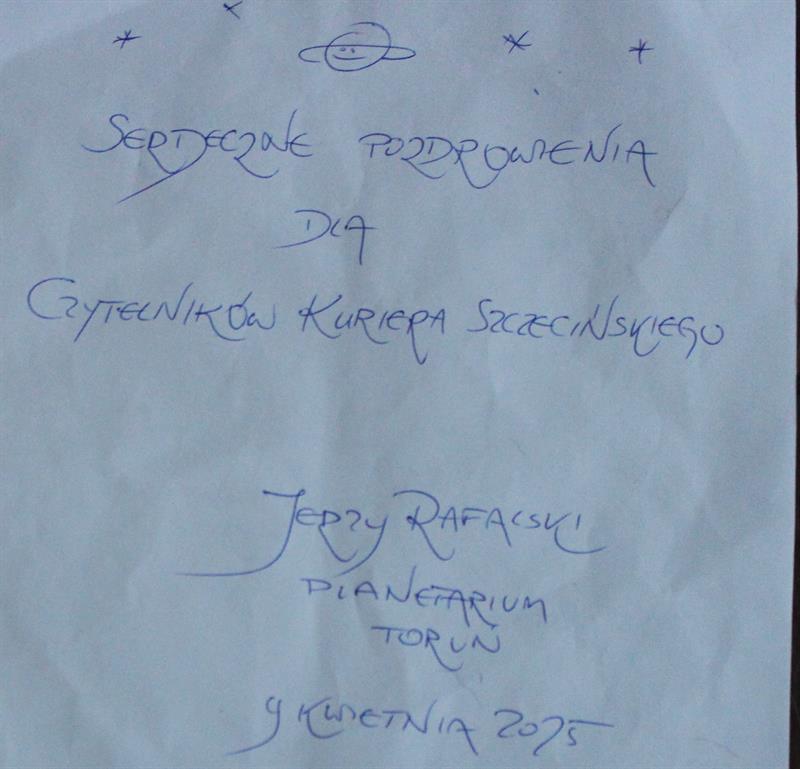 SERDECZNE POZDROWIENIA
DLA
CZYTELNIKÓW KURIERA SZCZECIŃSKIEGO
JERZY RAFALSKI
PLANETARIUM
TORUŃ
9 KWIETNIA 2015